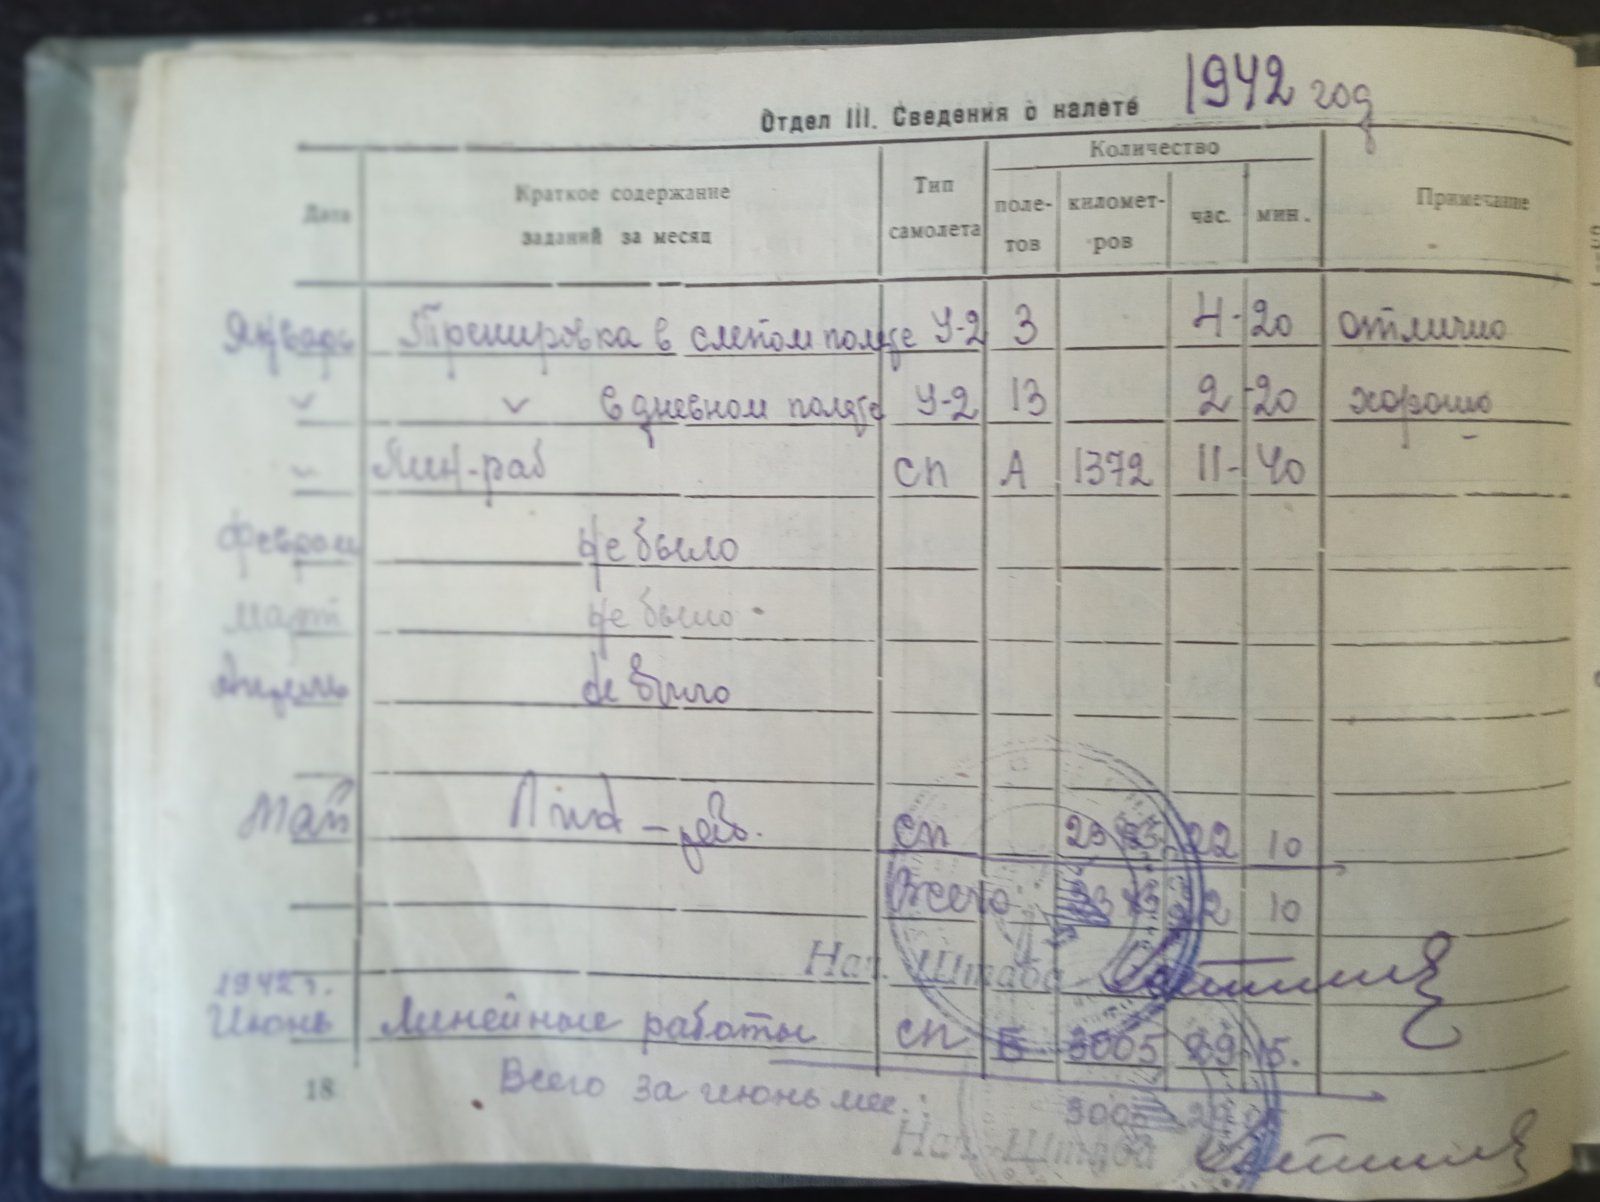 Отдел III. Сведения о налете 1942 год
Дата Краткое содержание заданий за месяц Тип самолета Количество Примечание
поле- километ- час. мин.
тов ров
Январь Тренировка в слепом полете У-2 3 4-20 отлично
" " в дневном полете У-2 13 2-20 хорошо
" Лин-раб СП А 1372 11-40
Февраль Не было
Март Не было
Апрель Не было
Май Лин-раб. СП 22 10
Всего 22 10
Нач. Штаба
1942 г.
Июнь Линейные работы СП 3005 29 15.
18 Всего за июнь мес.:
Нач. Штаба